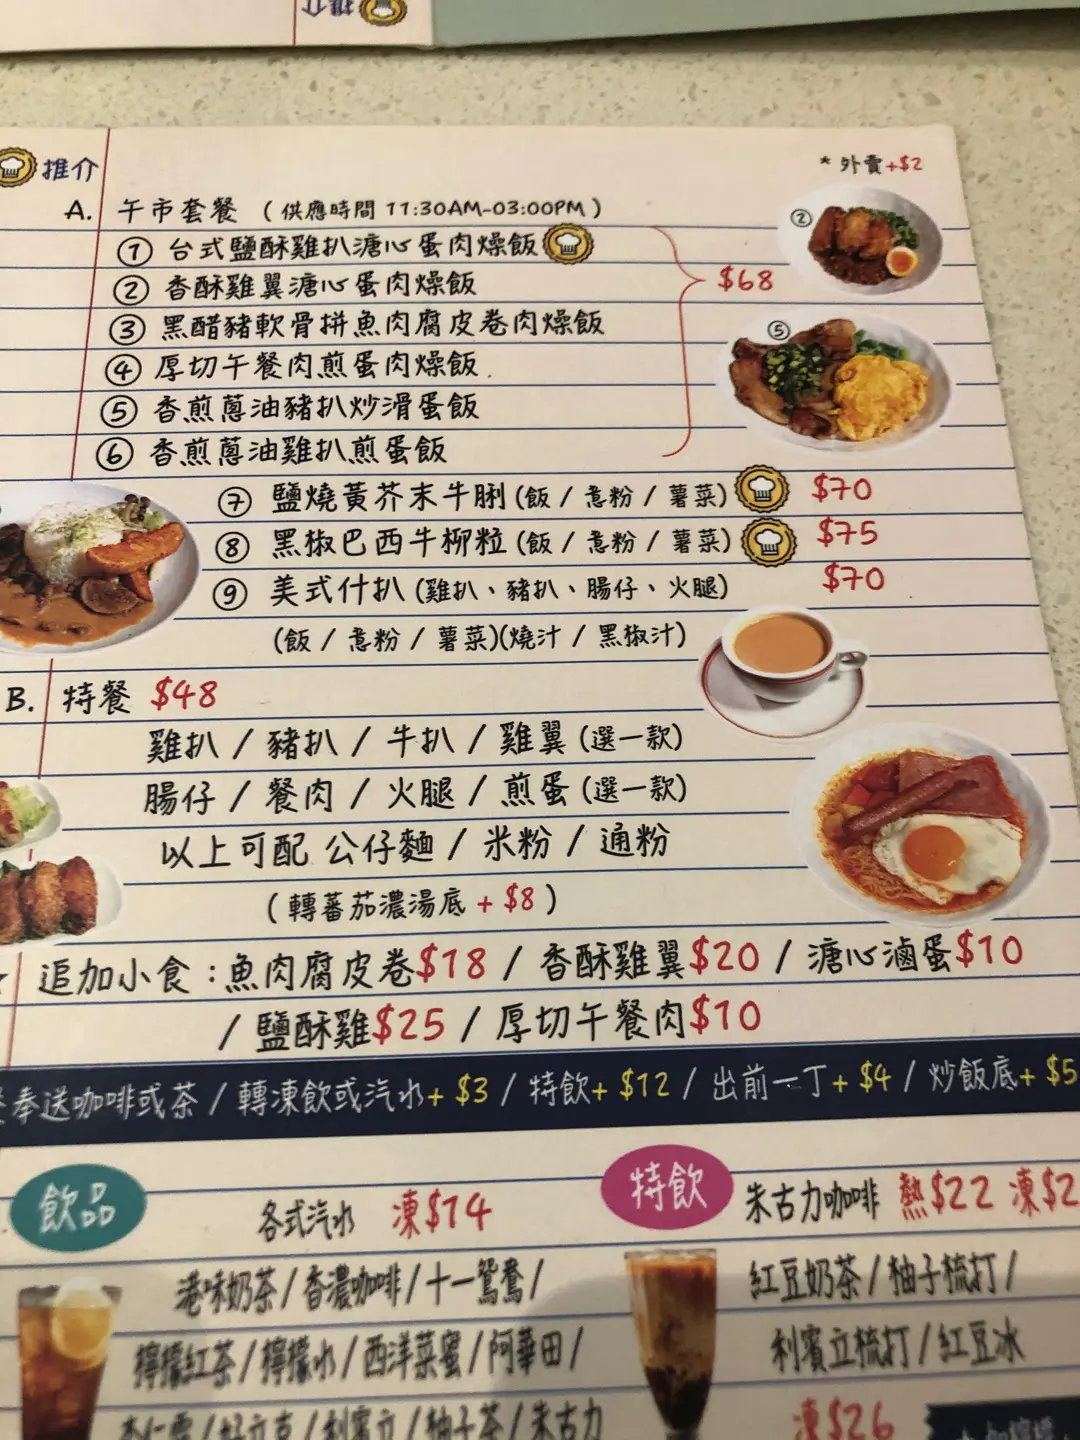 推介
推介
* 外賣+$2
A. 午市套餐 (供應時間 11:30AM-03:00PM)
① 台式鹽酥雞扒溏心蛋肉燥飯
② 香酥雞翼溏心蛋肉燥飯
$68
②
③ 黑醋豬軟骨拼魚肉腐皮卷肉燥飯
④ 厚切午餐肉煎蛋肉燥飯
⑤
⑤ 香煎蔥油豬扒炒滑蛋飯
⑥ 香煎蔥油雞扒煎蛋飯
⑦ 鹽燒黃芥末牛脷(飯 / 意粉 / 薯菜) $70
⑧ 黑椒巴西牛柳粒(飯 / 意粉 / 薯菜) $75
⑨ 美式什扒 (雞扒、豬扒、腸仔、火腿) $70
(飯 / 意粉 / 薯菜)(燒汁 / 黑椒汁)
B. 特餐 $48
雞扒 / 豬扒 / 牛扒 / 雞翼 (選一款)
腸仔 / 餐肉 / 火腿 / 煎蛋 (選一款)
以上可配 公仔麵 / 米粉 / 通粉
(轉蕃茄濃湯底 + $8)
追加小食：魚肉腐皮卷$18 / 香酥雞翼$20 / 溏心滷蛋$10
/ 鹽酥雞$25 / 厚切午餐肉$10
奉送咖啡或茶 / 轉凍飲或汽水+ $3 / 特飲+ $12 / 出前一丁+ $4 / 炒飯底+ $5
飲品 各式汽水 凍$14
特飲 朱古力咖啡 熱$22 凍$2
港味奶茶/香濃咖啡/十一鴛鴦/
紅豆奶茶/柚子梳打/
檸檬紅茶/檸檬水/西洋菜蜜/阿華田/
利賓立梳打/紅豆冰
杏仁霜/好立克/利賓立/柚子茶/朱古力
凍$26